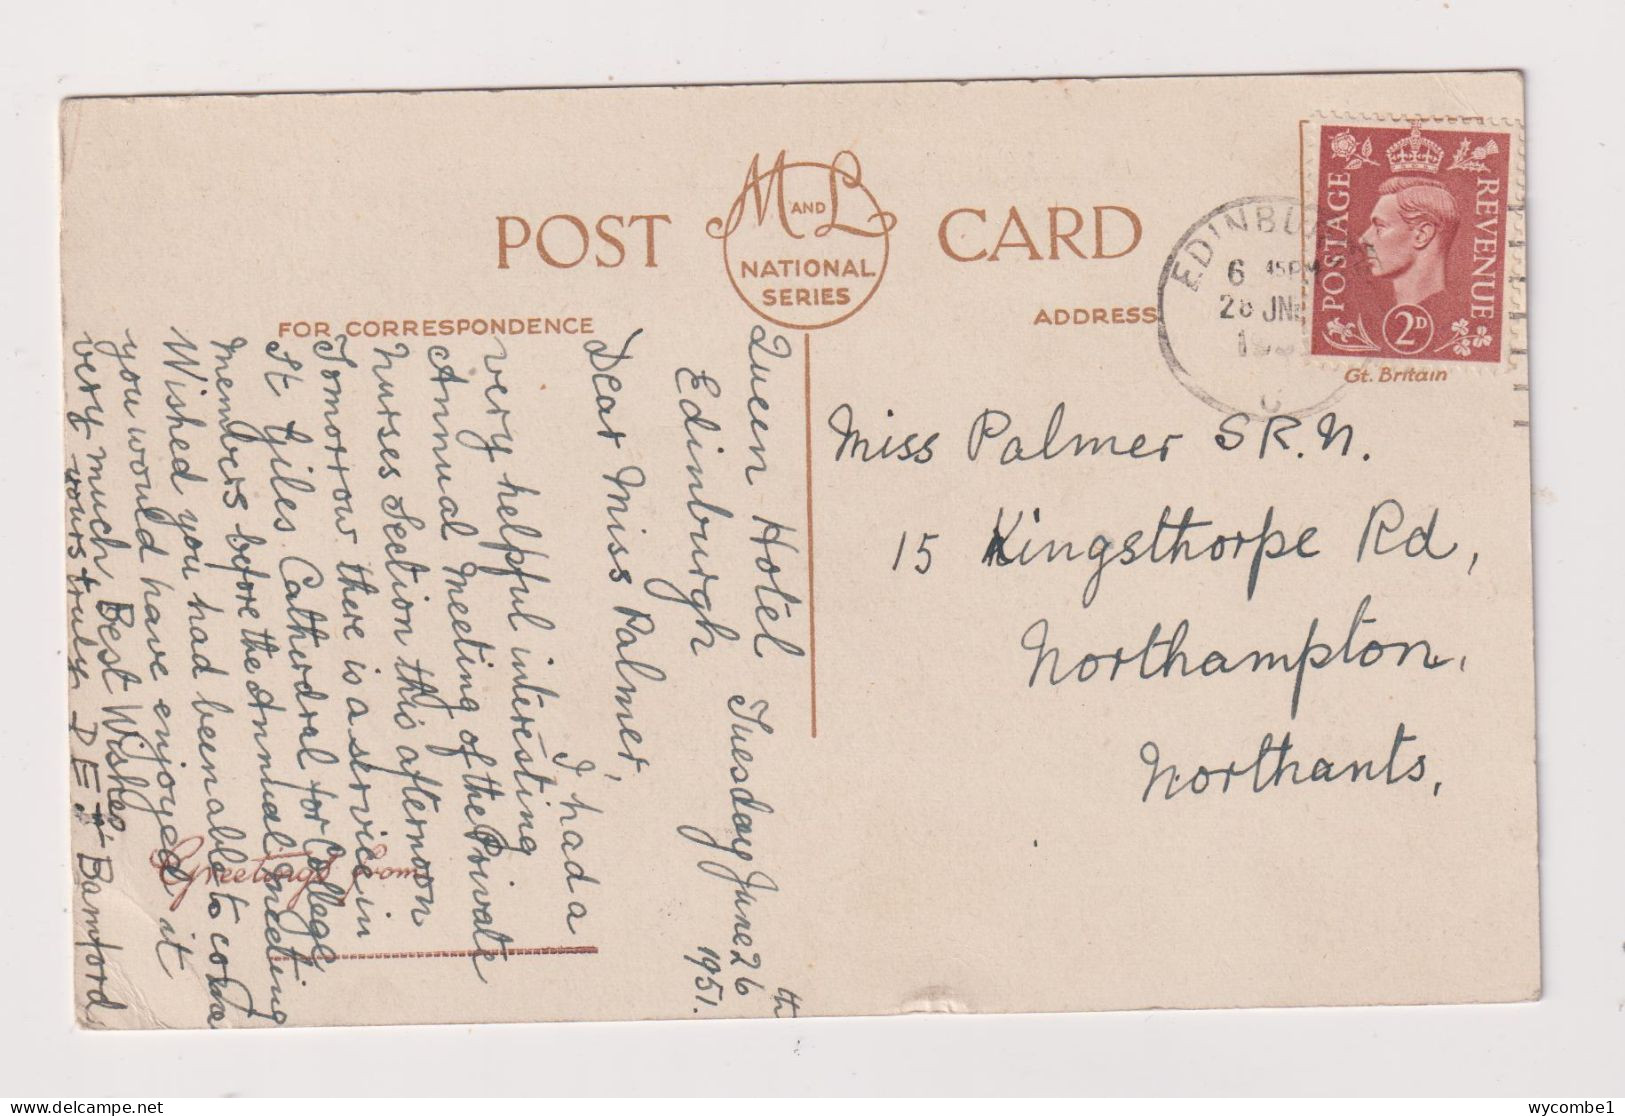 POST CARD
M AND L
NATIONAL
SERIES
FOR CORRESPONDENCE
ADDRESS
POSTAGE
REVENUE
2D
Gt. Britain
EDINBURGH
6 45PM
JNE
Queen Hotel
Edinburgh
Tuesday June 26th
1951.
Dear Miss Palmer,
I had a
very helpful interesting
Annual Meeting of the Private
Nurses Section this afternoon
Tomorrow there is a service in
St Giles Cathedral for College
Members before the Annual meeting
Wished you had been able to come
you would have enjoyed it
very much Best Wishes
yours truly D E Bamford
Greetings from
Miss Palmer S.R.N.
15 Kingsthorpe Rd,
Northampton,
Northants,
wycombe1